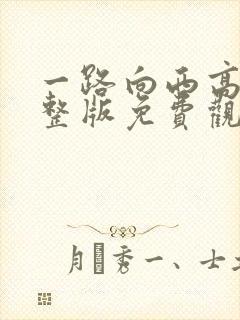 一路向西高
整版免費觀
月秀一、士